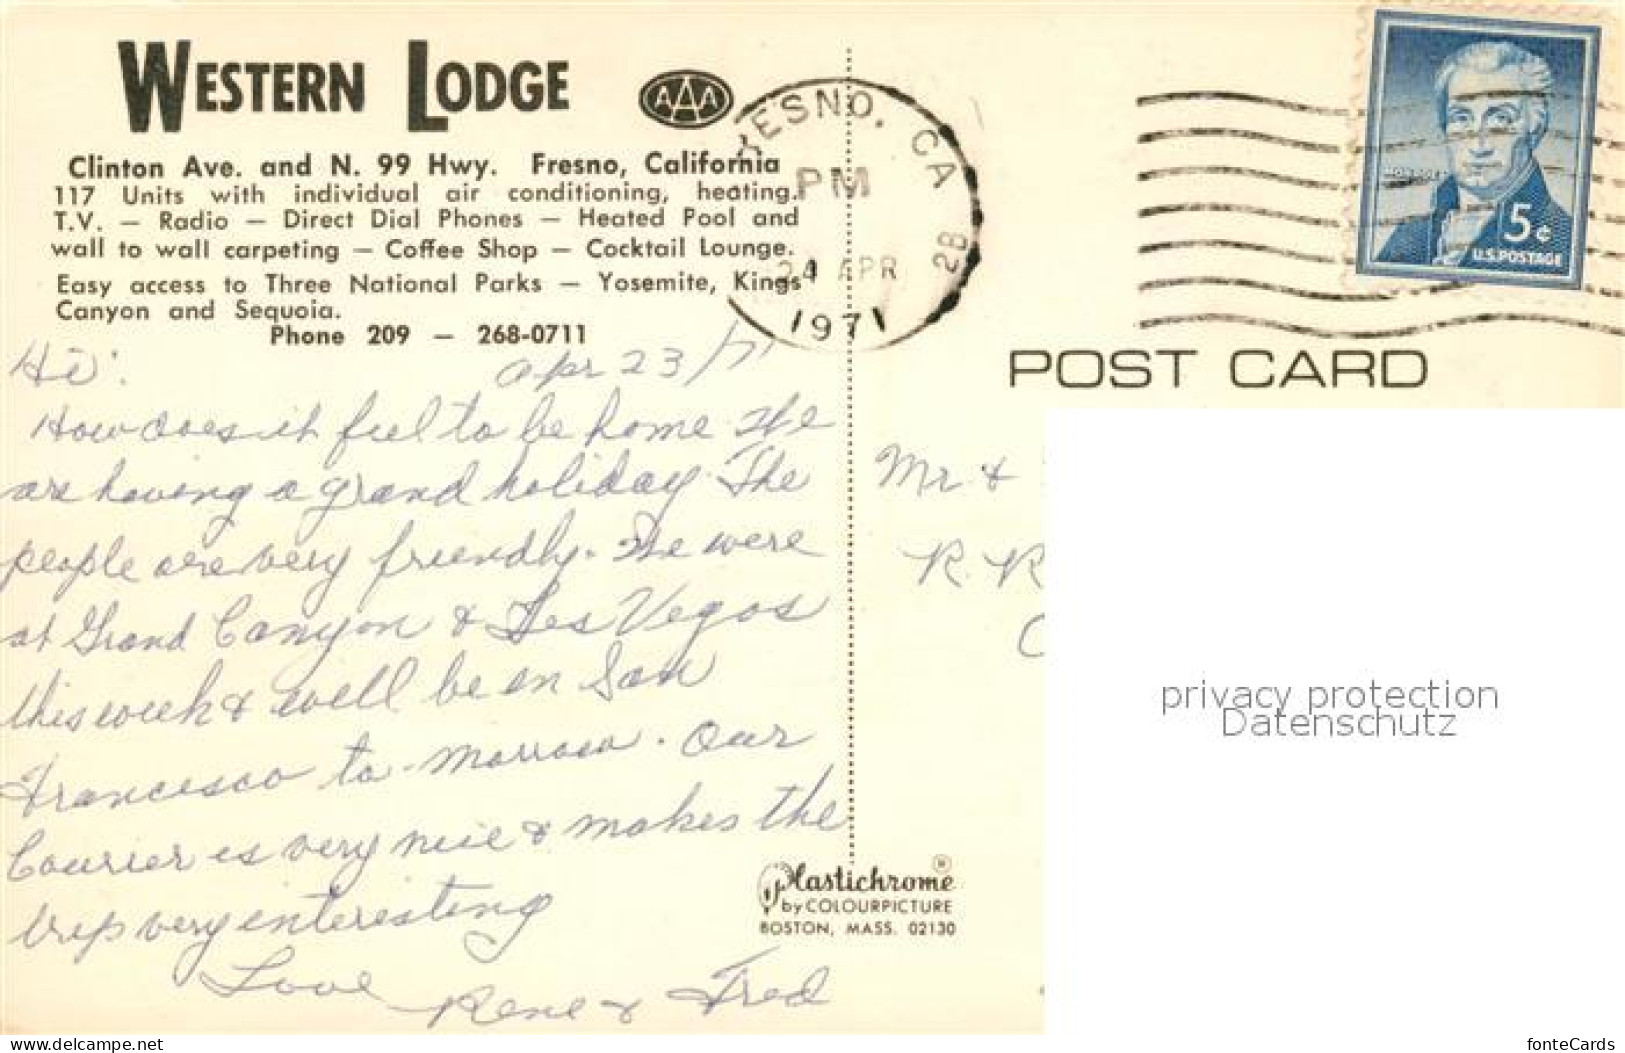 WESTERN LODGE
AAA
Clinton Ave. and N. 99 Hwy. Fresno, California
117 Units with individual air conditioning, heating.
T.V. — Radio — Direct Dial Phones — Heated Pool and
wall to wall carpeting — Coffee Shop — Cocktail Lounge.
Easy access to Three National Parks — Yosemite, Kings
Canyon and Sequoia.
Phone 209 — 268-0711
Hi! Apr 23/71
How does it feel to be home. We
are having a grand holiday. The
people are very friendly. We were
at Grand Canyon & Las Vegas
this week & will be in San
Francisco to-morrow. Our
Courier is very nice & makes the
trip very interesting
Love
Rene & Fred
FRESNO, CA
PM
24 APR
1971
2B
5¢
U.S. POSTAGE
POST CARD
Mr &
R. R
C
Plastichrome ®
by COLOURPICTURE
BOSTON, MASS. 02130
privacy protection
Datenschutz
www.delcampe.net
fonteCards